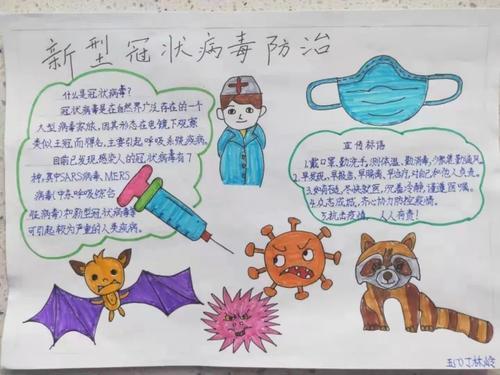 新型冠状病毒防治
什么是冠状病毒?
冠状病毒是在自然界广泛存在的一个
大型病毒家族,因其形态在电镜下观察
类似王冠而得名,主要引起呼吸系统疾病。
目前已发现感染人的冠状病毒有7
种,其中SARS病毒、MERS
病毒(中东呼吸综合
征病毒)和新型冠状病毒等
可引起较为严重的人类疾病。
宣传标语
1.戴口罩,勤洗手,测体温,勤消毒,少聚集,勤通风
2.早发现,早报告,早隔离,早治疗,对自己和他人负责。
3.如有征,尽快就医,沉着冷静,谨遵医嘱。
4.众志成城,齐心协力防控疫情。
5.抗击疫情,人人有责!